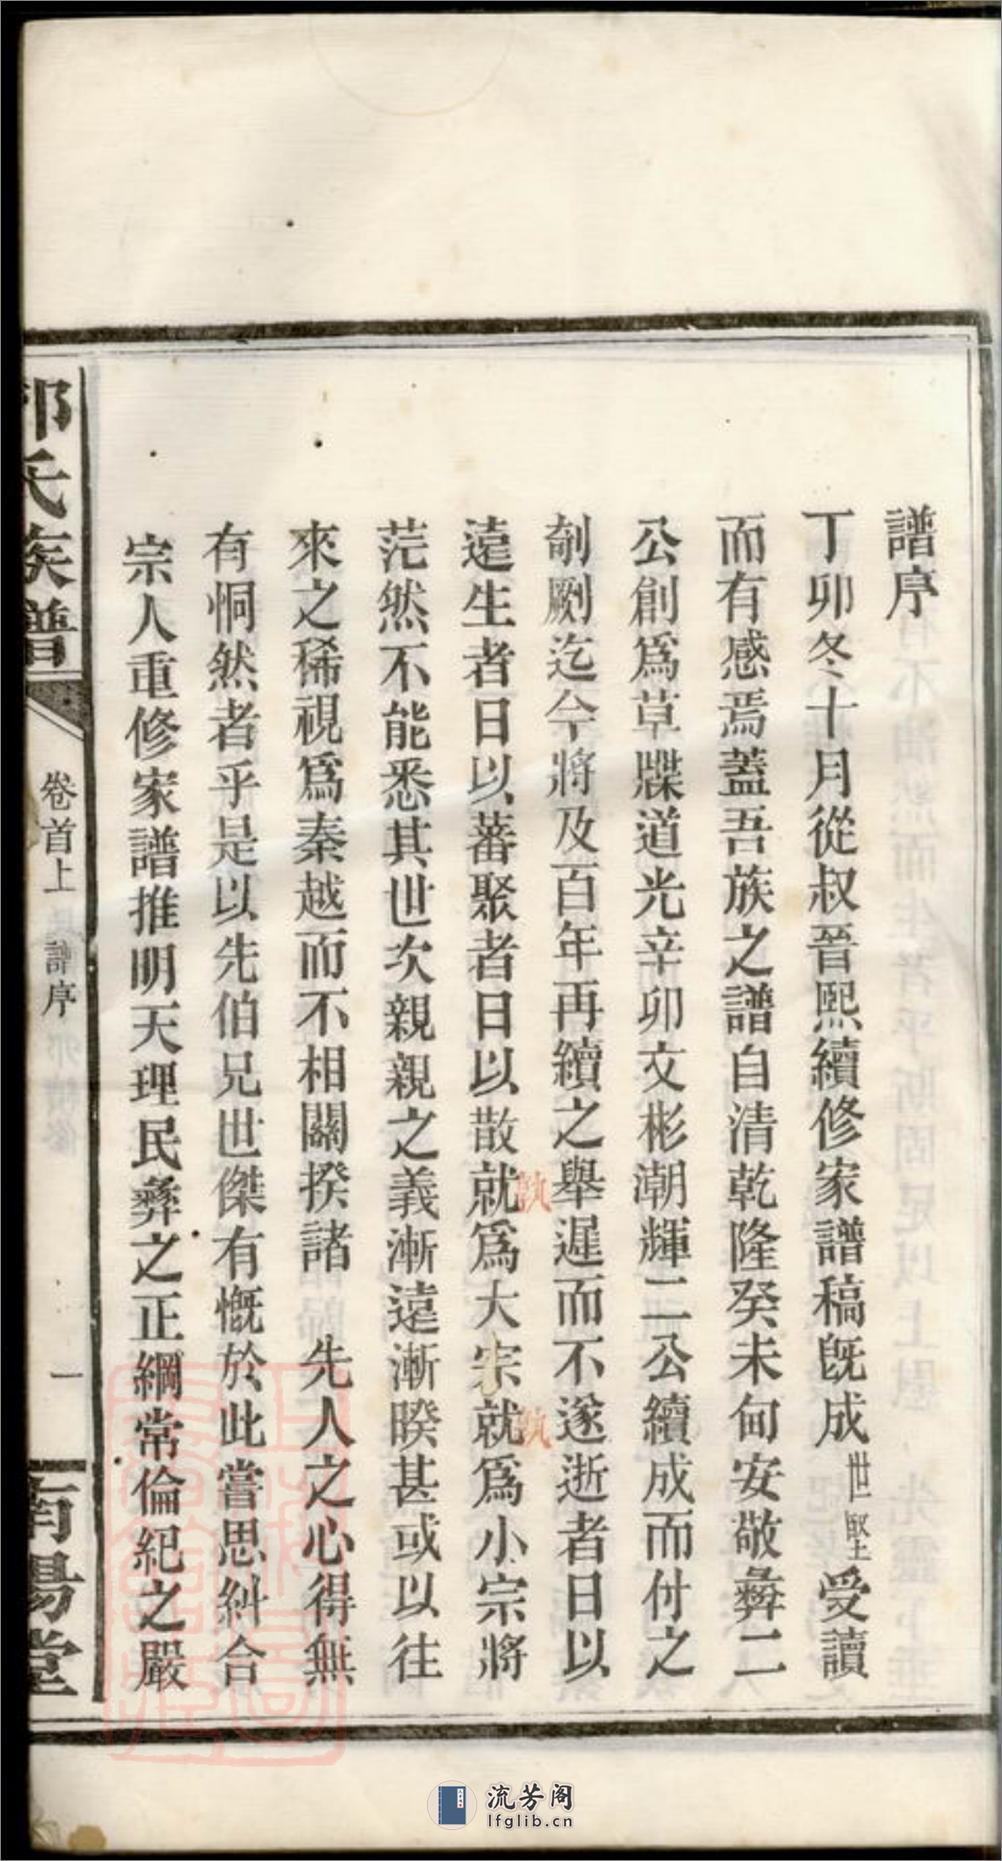 譜序
丁卯冬十月從叔晉熙續修家譜稿旣成世堅受讀
而有感焉蓋吾族之譜自清乾隆癸未甸安敬彝二
公創爲草牒道光辛卯文彬潮輝二公續成而付之
剞劂迄今將及百年再續之舉遲而不遂逝者日以
遠生者日以蕃聚者日以散就爲大宗就爲小宗將
孰
孰
茫然不能悉其世次親親之義漸遠漸暌甚或以往
來之稀視爲秦越而不相關揆諸 先人之心得無
有恫然者乎是以先伯兄世傑有慨於此嘗思糾合
宗人重修家譜推明天理民彝之正綱常倫紀之嚴
氏族譜
卷首上 譜序
一
南陽堂
流芳阁
lfglib.cn